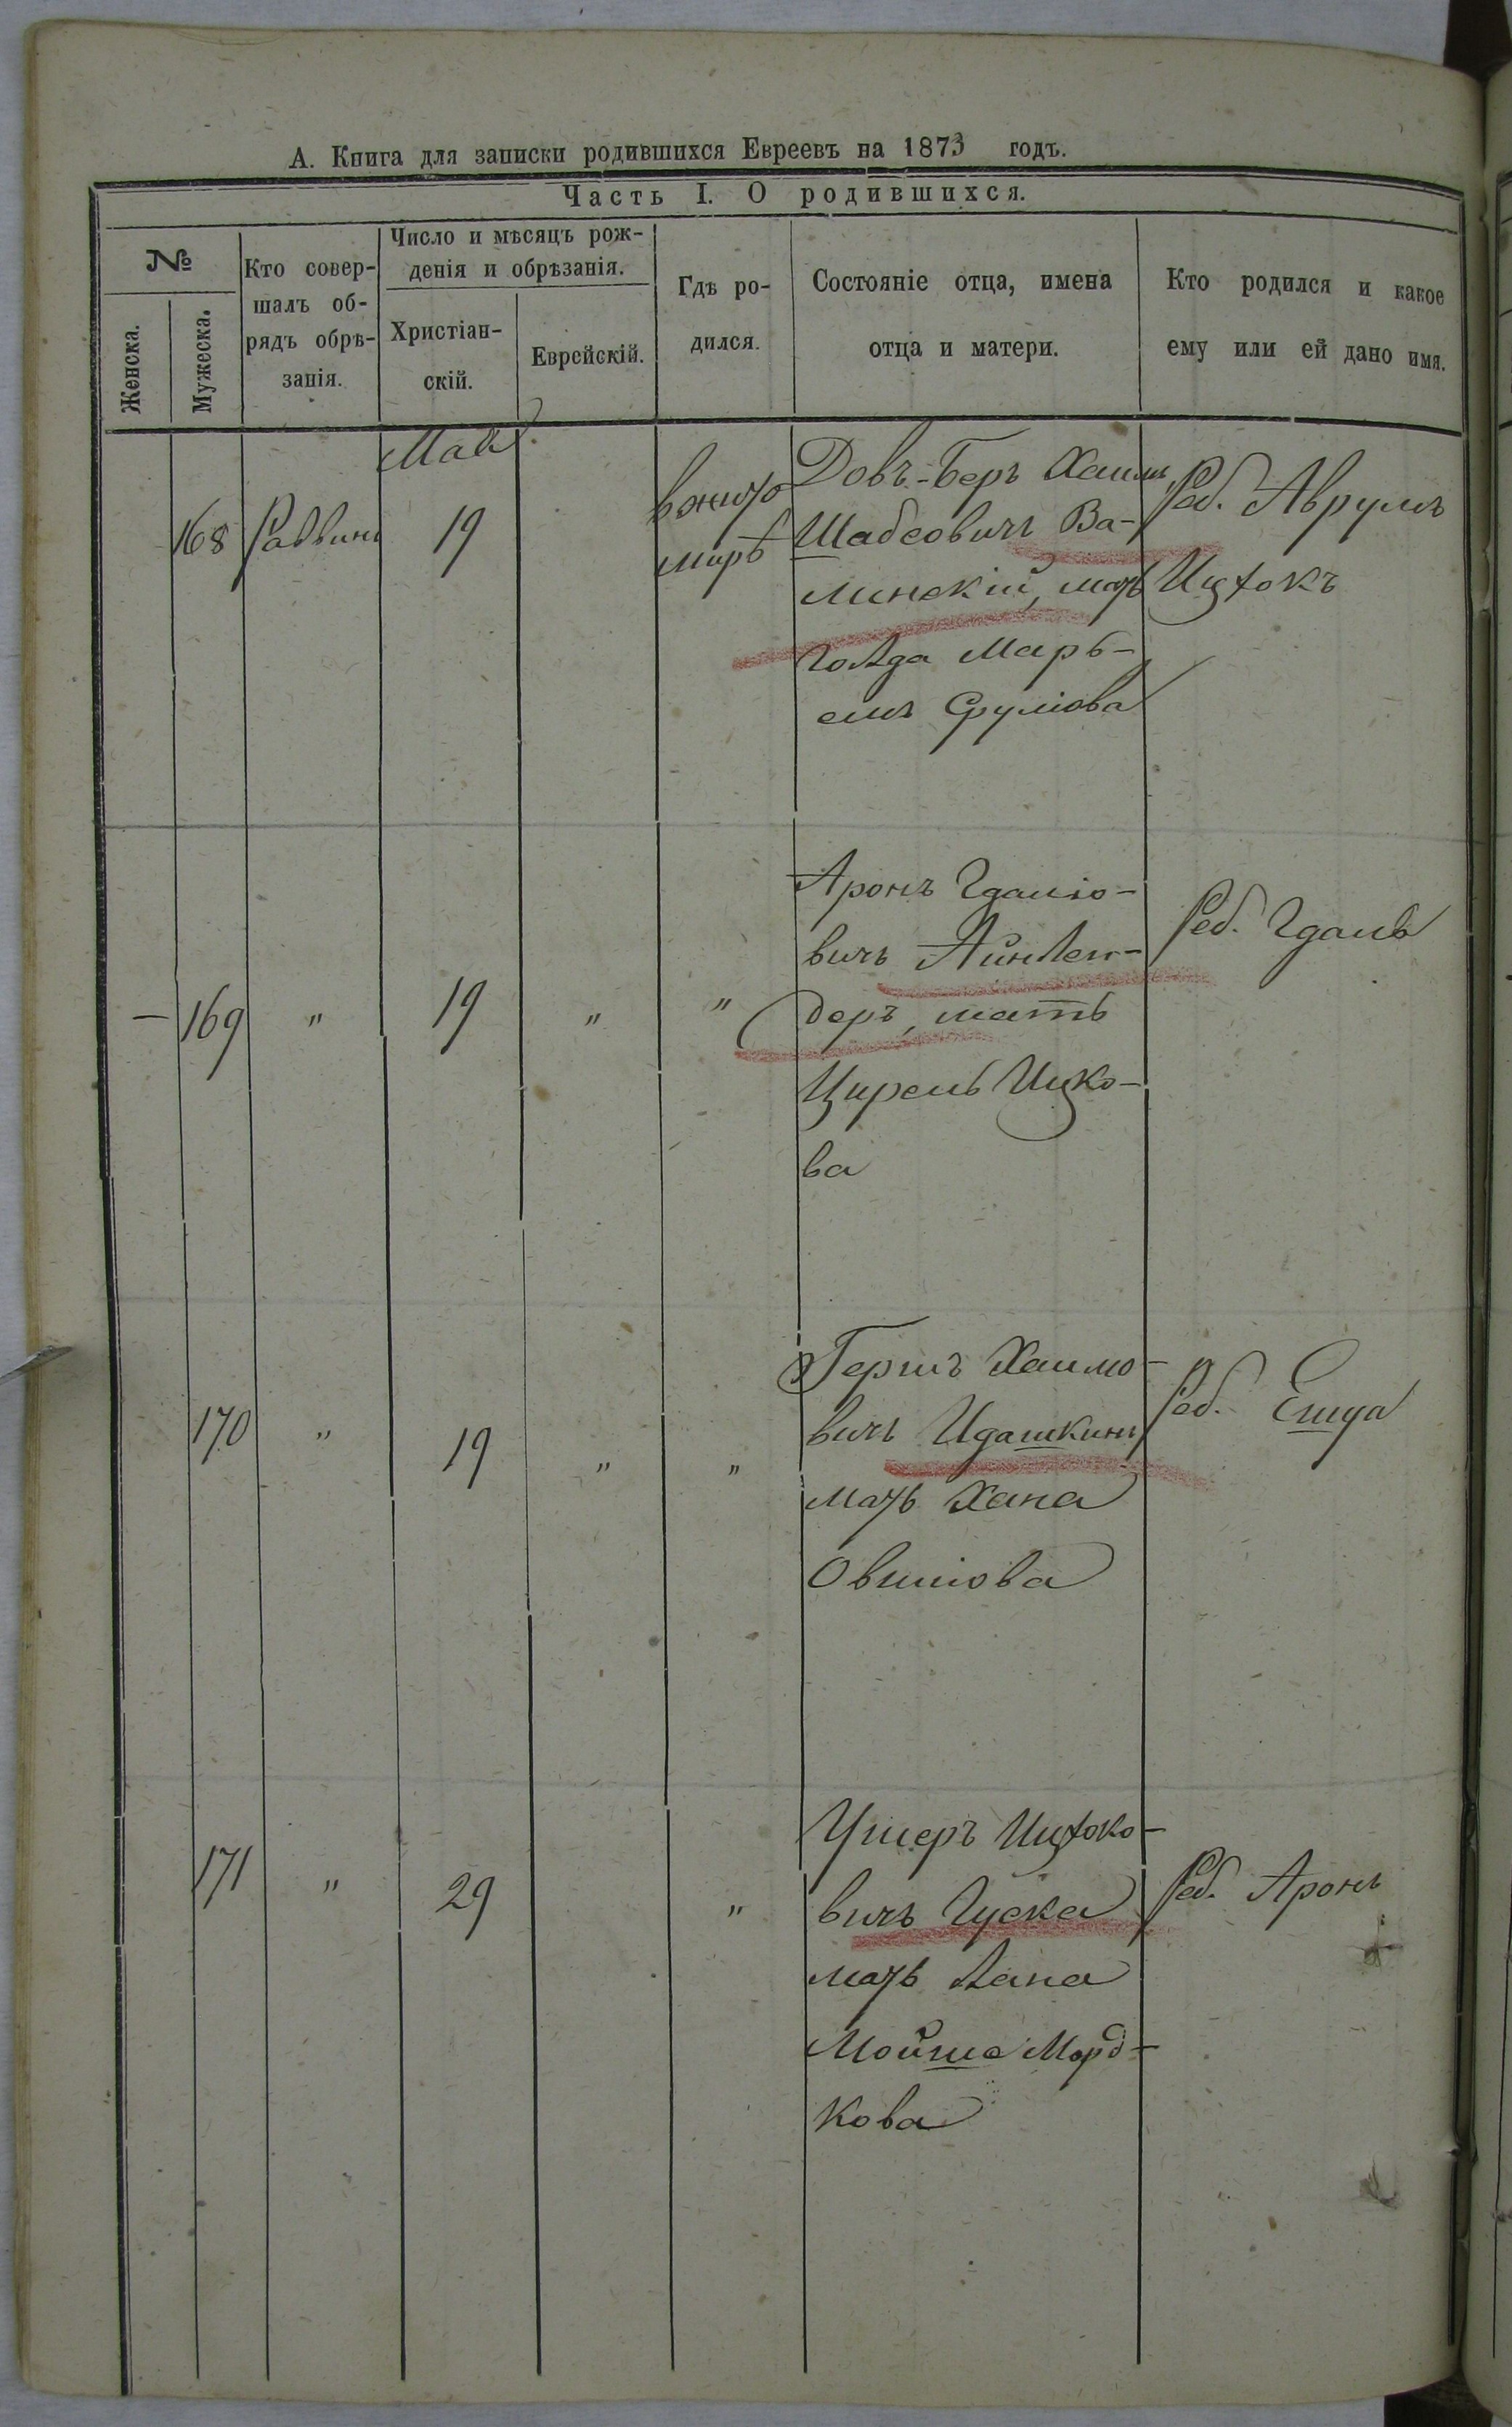 А. Книга для записки родившихся Евреевъ на 1873 годъ.
Часть I. О родившихся.
№
Женска.
Мужеска.
Кто совер-
шалъ об-
рядъ обрѣ-
занія.
Число и мѣсяцъ рож-
денія и обрѣзанія.
Христіан-
скій.
Еврейскій.
Гдѣ ро-
дился.
Состояніе отца, имена
отца и матери.
Кто родился и какое
ему или ей дано имя.
Мая
168
Раввинъ
19
в жито
мирѣ
Довъ-Беръ Хаимъ
Шабсовичъ Ва-
линскій, мать
Голда Марь-
емъ Сруліова
Реб. Аврумъ
Ицхокъ
– 169
"
19
"
"
Аронъ Гдаліо-
вичъ Айнлен-
деръ, мать
Цирель Ицко-
ва
Реб. Гдаль
170
"
19
"
"
Гершъ Хаимо-
вичъ Идашкинъ
мать Хана
Овшіова
Реб. Ешуа
171
"
29
"
Ушеръ Ицхоко-
вичъ Гуска
мать Хана
Мойше Морд-
кова
Реб. Аронъ